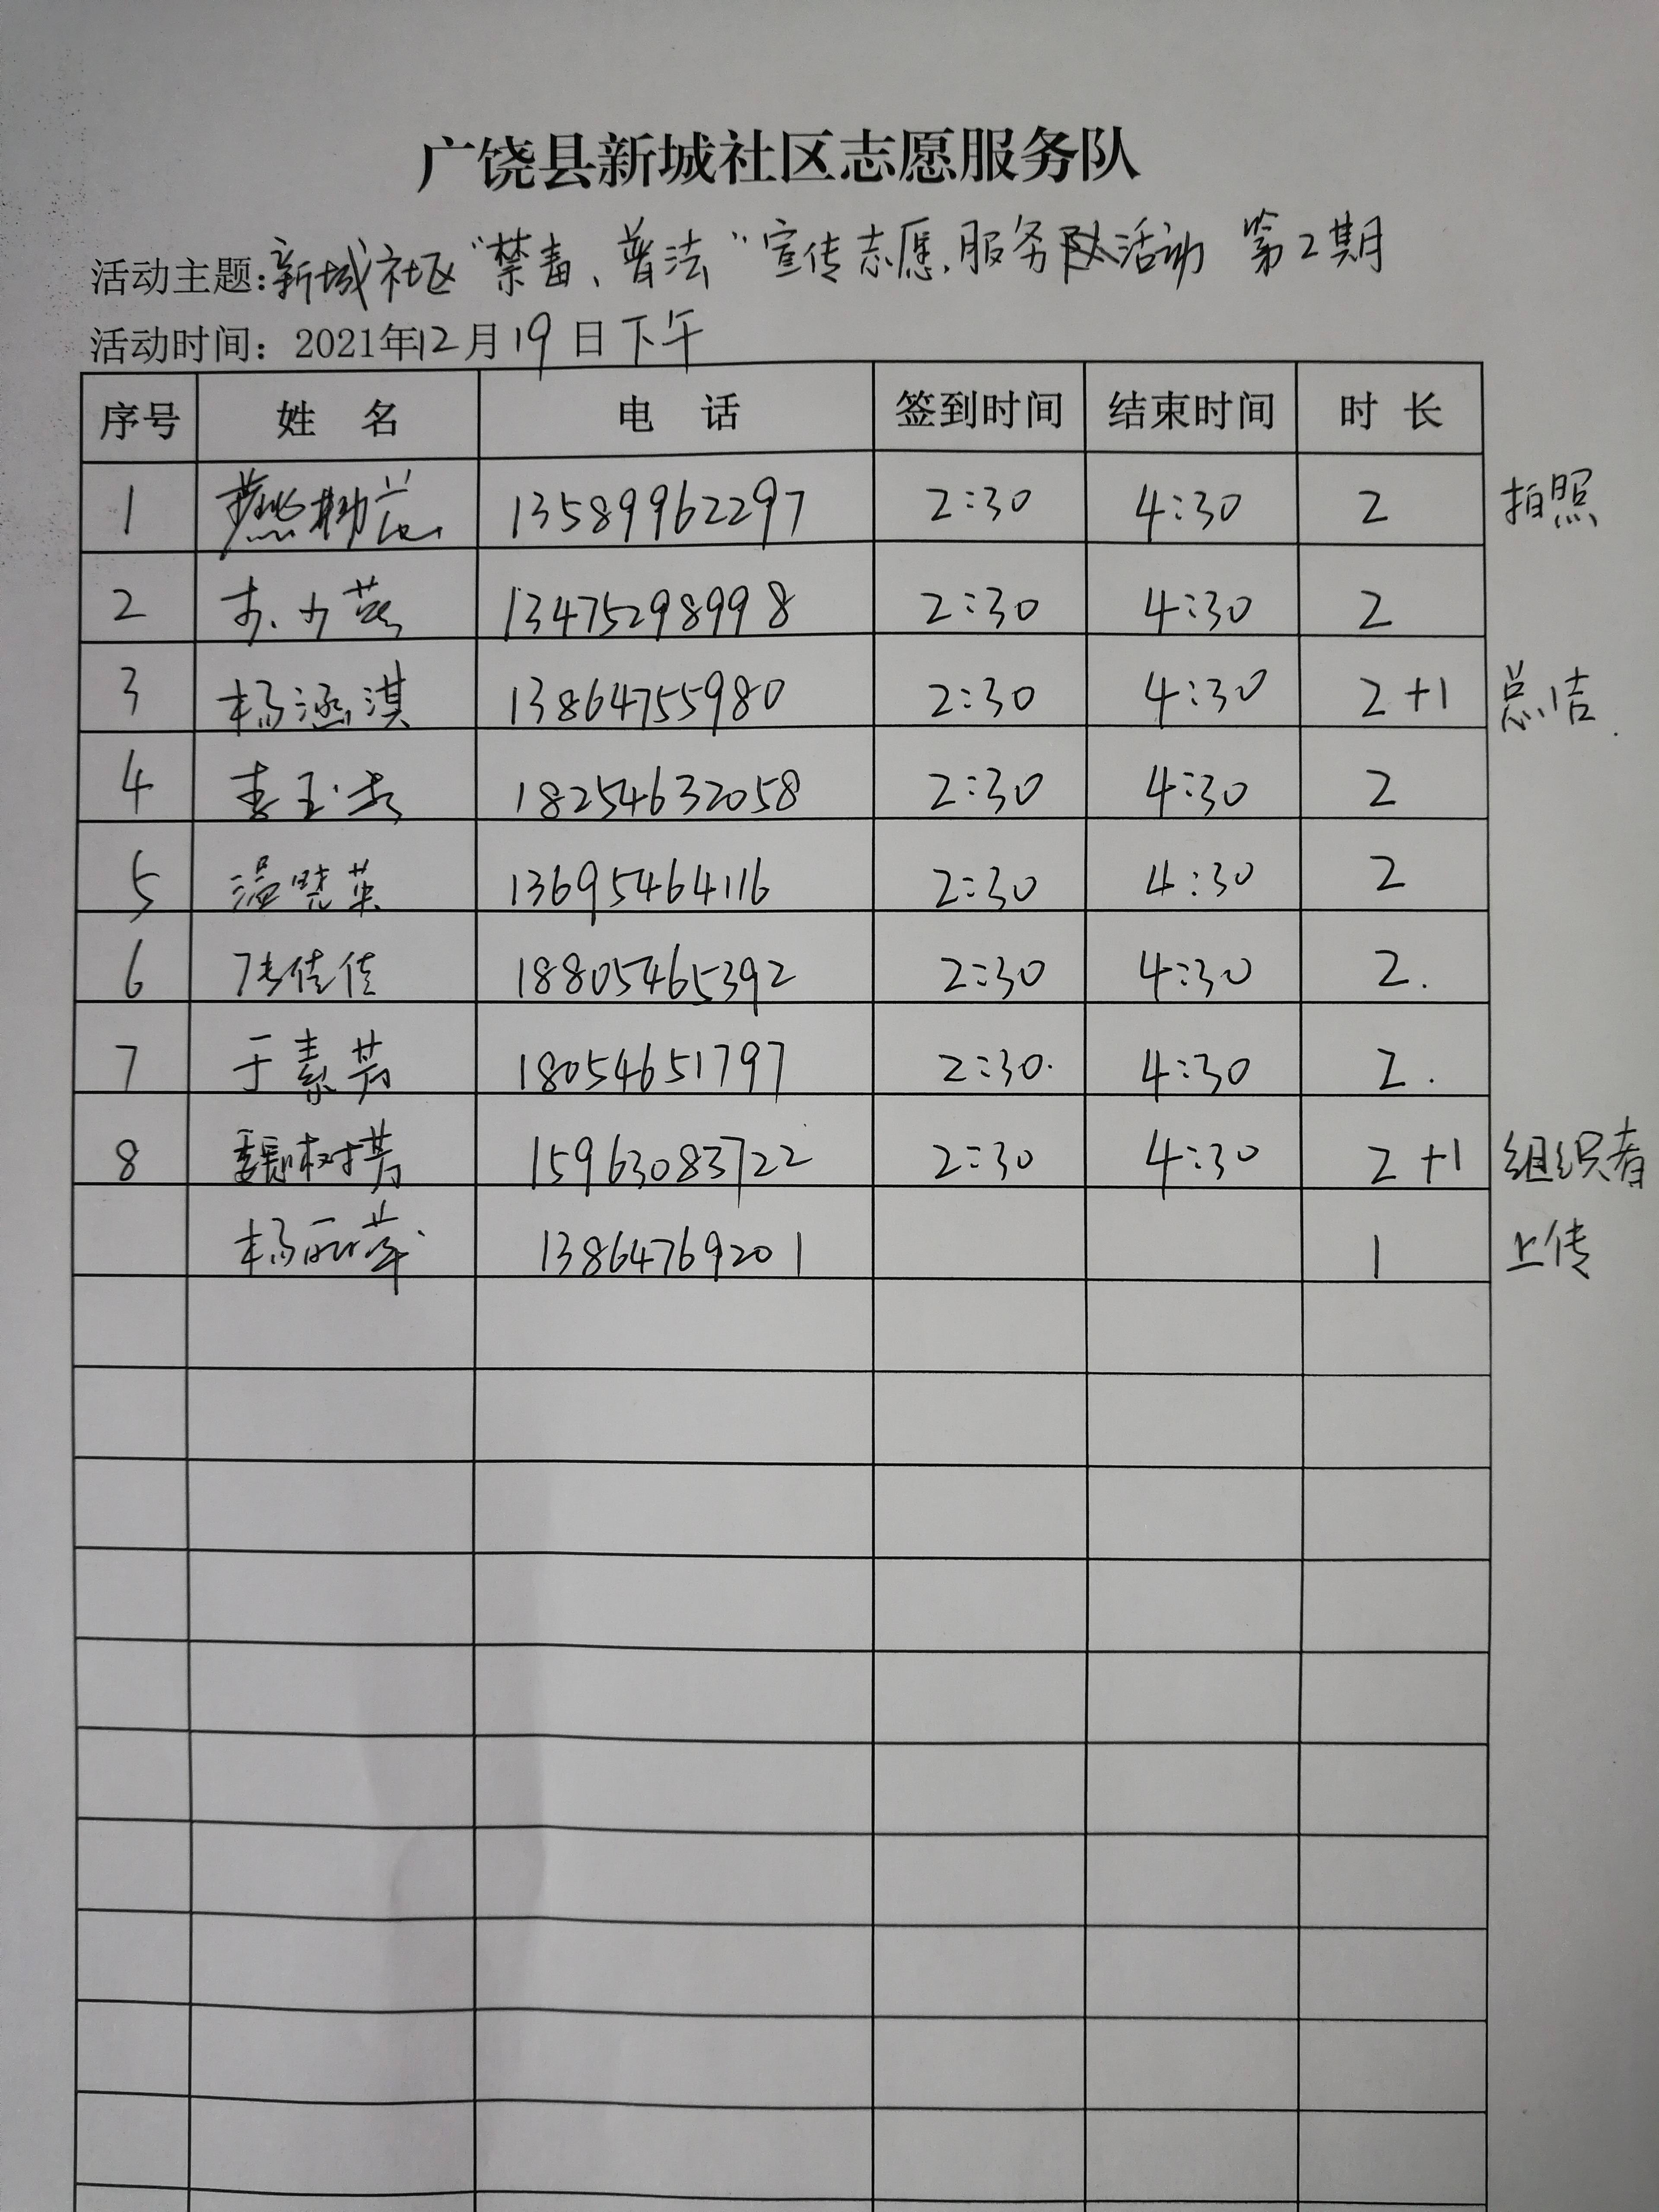 广饶县新城社区志愿服务队
活动主题:新城社区“禁毒、普法”宣传志愿服务队活动 第2期
活动时间：2021年12月19日下午
序号 姓名 电话 签到时间 结束时间 时长
1 13589962297 2:30 4:30 2 拍照
2 13475298998 2:30 4:30 2
3 杨涵淇 13864755980 2:30 4:30 2+1 总结
4 18254632058 2:30 4:30 2
5 温晓英 13695464116 2:30 4:30 2
6 张佳佳 18805465392 2:30 4:30 2.
7 于素芳 18054651797 2:30. 4:30 2.
8 魏树芳 15963083722 2:30 4:30 2+1 组织者
杨丽萍 13864769201 1 上传